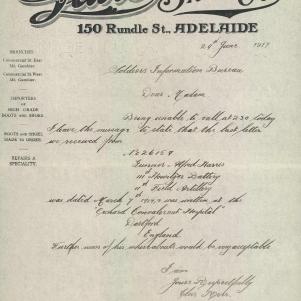 150 Rundle St., ADELAIDE
BRANCHES:
Commercial St. East
Mt. Gambier.
Commercial St. West
Mt. Gambier.
IMPORTERS
OF
HIGH GRADE
BOOTS AND SHOES
BOOTS AND SHOES
MADE TO ORDER.
REPAIRS A
SPECIALITY.
June 1917
Soldiers Information Bureau
Dear Madam
Being unable to call at 2.30 today
I have the message to state that the last letter
we received from
No 26157
Gunner Alfred Harris
Howitzer Battery
Field Artillery
was dated March 7 1917 & was written at the
Convalescent Hospital"
Dartford
England
Further news of his whereabouts would be very acceptable
I am
Yours Respectfully